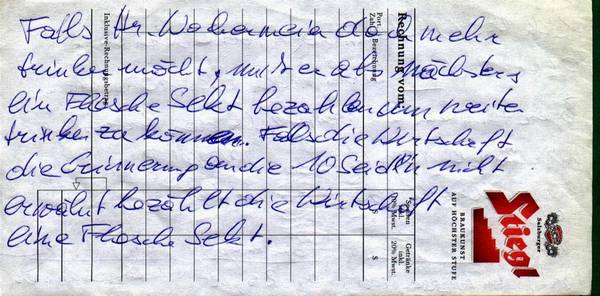 Falls Hr. Wachermeia doch mehr
trinken möcht, muß er als nächstes
ein Flasche Sekt bezahlen um weiter
trinken zu können. Falls die Wirtschaft
die Erinnerung an die 10 Seid'ln nicht
erwähnt bezahlt die Wirtschaft
eine Flasche Sekt.
Rechnung vom:
Port. Bezeichnung
Zahl
Inklusive-Rechnungsbetrag
Speisen
inkl.
10% Mwst.
S
Getränke
inkl.
20% Mwst.
S
BRAUKUNST
AUF HÖCHSTER STUFE
Salzburger
Stiegl